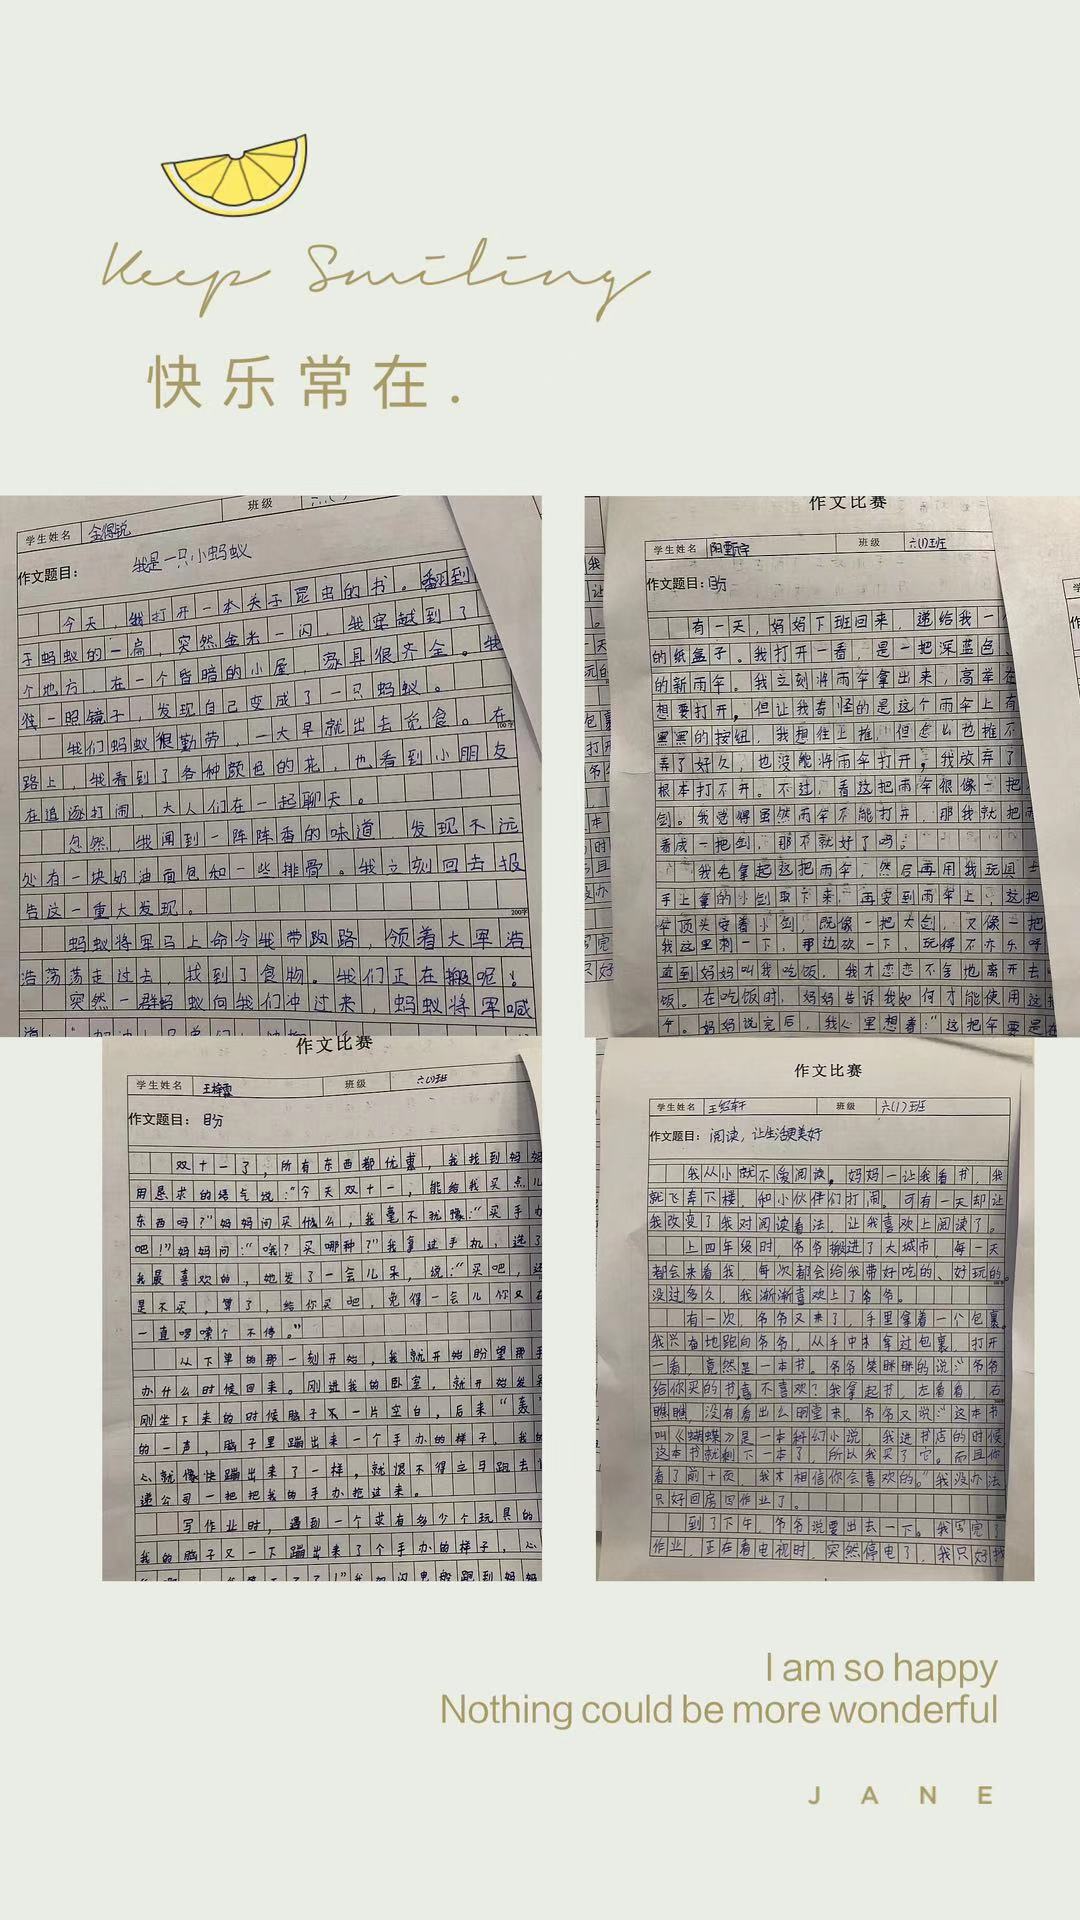 Keep Smiling
快乐常在.
班级
学生姓名
作文题目： 我是一只小蚂蚁
今天，我打开一本关于昆虫的书。翻到
于蚂蚁的一扁，突然金光一闪，我穿越到了
个地方，在一个昏暗的小屋，家具很齐全。我
一照镜子，发现自己变成了一只蚂蚁。
我们蚂蚁很勤劳，一大早就出去觅食。在
路上，我看到了各种颜色的花，也看到小朋友
在追逐打闹，大人们在一起聊天。
忽然，我闻到一阵阵香的味道，发现不远
处有一块奶油面包和一些排骨。我立刻回去报
告这一重大发现。
200字
蚂蚁将军马上命令我带路，领着大军浩
浩荡荡走过去，找到了食物。我们正在搬呢！
突然一群蚂蚁向我们冲过来，蚂蚁将军喊
作文比赛
学生姓名 班级 六(1)班
作文题目：
有一天，妈妈下班回来，递给我一
的纸盒子。我打开一看，是一把深蓝色
的新雨伞。我立刻将雨伞拿出来，高举在
想要打开，但让我奇怪的是这个雨伞上有
黑黑的按钮，我想往上推，但怎么也推不
弄了好久，也没能将雨伞打开，我放弃了
根本打不开。不过，看这把雨伞很像一把
剑。我觉得虽然雨伞不能打开，那我就把
看成一把剑，那不就好了吗？
我先拿起这把雨伞，然后再用我玩具士
手上拿的小剑取下来，再安到雨伞上，这把
伞顶头安着小剑，既像一把大剑，又像一把
我这里刺一下，那边砍一下，玩得不亦乐乎
直到妈妈叫我吃饭，我才恋恋不舍地离开去
饭。在吃饭时，妈妈告诉我如何才能使用这
伞。妈妈说完后，我心里想着：“这把伞要是在
作文比赛
学生姓名 班级 六(1)班
作文题目：
双十一了，所有东西都优惠，我找到妈妈
用恳求的语气说：“今天双十一，能给我买点儿
东西吗？”妈妈问买什么，我毫不犹豫：“买手办
吧！”妈妈问：“哦？买哪种？”我拿过手机，选了
我最喜欢的，她发了一会儿呆，说：“买吧，还
是不买，算了，给你买吧，免得一会儿你又在
一直啰嗦个不停。”
从下单的那一刻开始，我就开始盼望那手
办什么时候回来。刚进我的卧室，就开始发呆
刚坐下来的时候脑子一片空白，后来“轰”
的一声，脑子里蹦出来一个手办的样子，我的
心就像快蹦出来了一样，就恨不得立马跑去
递公司一把把我的手办抢过来。
写作业时，遇到一个求有多少个玩具的
我的脑子又一下蹦出来了个手办的样子，心
作文比赛
学生姓名 班级 六(1)班
作文题目： 阅读，让生活更美好
我从小就不爱阅读，妈妈一让我看书，我
就飞奔下楼，和小伙伴们打闹。可有一天却让
我改变了我对阅读看法，让我喜欢上阅读了。
上四年级时，爷爷搬进了大城市，每一天
都会来看我，每次都会给我带好吃的、好玩的。
没过多久，我渐渐喜欢上了爷爷。
有一次，爷爷又来了，手里拿着一个包裹。
我兴奋地跑向爷爷，从手中拿过包裹，打开
一看，竟然是一本书。爷爷笑眯眯的说：“爷爷
给你买的书，喜不喜欢？我拿起书，左看看，右
瞧瞧，没有看出什么明堂来。爷爷又说：“这本书
叫《蝴蝶》是一本科幻小说，我进书店的时候
这本书就剩下一本了，所以我买了它。而且你
看了前十页，我才相信你会喜欢的。”我没办法
只好回房写作业了。
到了下午，爷爷说要出去一下。我写完了
作业，正在看电视时，突然停电了，我只好找
I am so happy
Nothing could be more wonderful
JANE